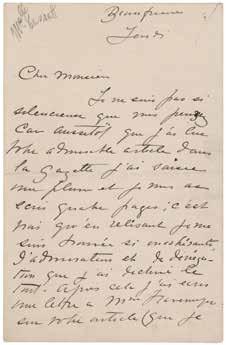 Jeudi
Cher Monsieur
Je ne suis pas si
silencieuse que vous pensez
Car aussitot que j'ai lu
votre admirable article dans
la Gazette j'ai saisie
une plume et je vous ai
écrit quatre pages; c'est
vrai qu'en relisant je me
suis trouvée si
d'admiration et de
que j'ai déchiré le
tout. Après cela j'ai
une lettre a Mme
sur votre article (que je